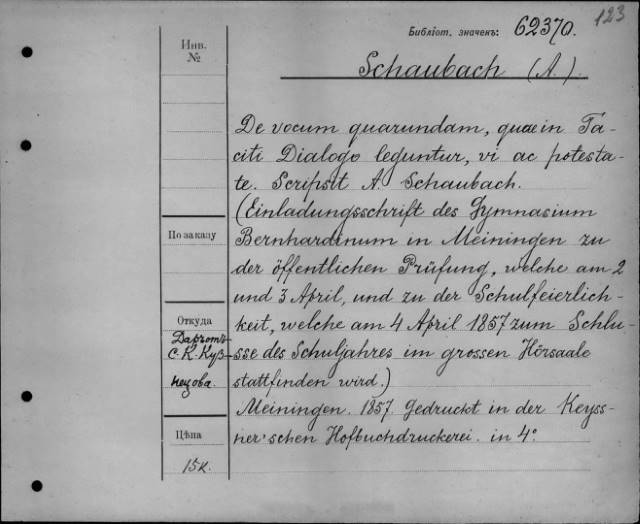 123
Библіот. значенъ: 62370.
Инв.
№
Schaubach (A.).
De vocum quarundam, quae in Ta-
citi Dialogo leguntur, vi ac potesta-
te. Scripsit A. Schaubach.
(Einladungsschrift des Gymnasium
По заказу
Bernhardinum in Meiningen zu
der öffentlichen Prüfung, welche am 2
und 3 April, und zu der Schulfeierlich-
Откуда
keit, welche am 4 April 1857 zum Schlu-
Даръ отъ
С. К. Куз-
sse des Schuljahres im grossen Hörsaale
нецова.
stattfinden wird.)
Meiningen. 1857. Gedruckt in der Keyss-
Цѣна
ner'schen Hofbuchdruckerei. in 4°.
15 к.